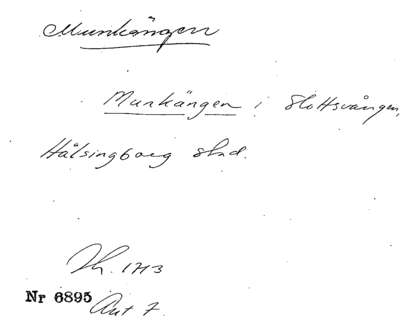 Munkängen
Munkängen i Slottsvången,
Hälsingborg stad.
Th. 1713
Nr 6895
Aut 7.